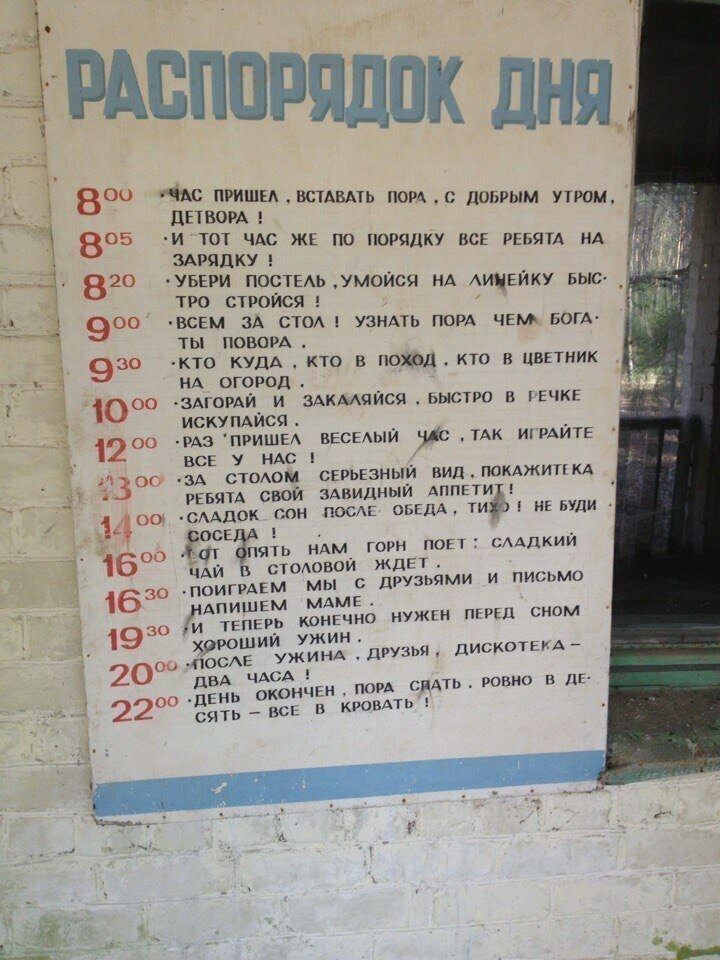 РАСПОРЯДОК ДНЯ
8 00 · ЧАС ПРИШЕЛ , ВСТАВАТЬ ПОРА , С ДОБРЫМ УТРОМ,
ДЕТВОРА !
8 05 · И ТОТ ЧАС ЖЕ ПО ПОРЯДКУ ВСЕ РЕБЯТА НА
ЗАРЯДКУ !
8 20 · УБЕРИ ПОСТЕЛЬ , УМОЙСЯ НА ЛИНЕЙКУ БЫС-
ТРО СТРОЙСЯ !
9 00 · ВСЕМ ЗА СТОЛ ! УЗНАТЬ ПОРА ЧЕМ БОГА-
ТЫ ПОВОРА .
9 30 · КТО КУДА , КТО В ПОХОД , КТО В ЦВЕТНИК
НА ОГОРОД .
10 00 · ЗАГОРАЙ И ЗАКАЛЯЙСЯ , БЫСТРО В РЕЧКЕ
ИСКУПАЙСЯ .
12 00 · РАЗ ПРИШЕЛ ВЕСЕЛЫЙ ЧАС , ТАК ИГРАЙТЕ
ВСЕ У НАС !
13 00 · ЗА СТОЛОМ СЕРЬЕЗНЫЙ ВИД , ПОКАЖИТЕКА
РЕБЯТА СВОЙ ЗАВИДНЫЙ АППЕТИТ !
14 00 · СЛАДОК СОН ПОСЛЕ ОБЕДА , ТИХО ! НЕ БУДИ
СОСЕДА !
16 00 · ОТ ОПЯТЬ НАМ ГОРН ПОЕТ : СЛАДКИЙ
ЧАЙ В СТОЛОВОЙ ЖДЕТ .
16 30 · ПОИГРАЕМ МЫ С ДРУЗЬЯМИ И ПИСЬМО
НАПИШЕМ МАМЕ .
19 30 · И ТЕПЕРЬ КОНЕЧНО НУЖЕН ПЕРЕД СНОМ
ХОРОШИЙ УЖИН .
20 00 · ПОСЛЕ УЖИНА , ДРУЗЬЯ , ДИСКОТЕКА –
ДВА ЧАСА !
22 00 · ДЕНЬ ОКОНЧЕН , ПОРА СПАТЬ , РОВНО В ДЕ-
СЯТЬ – ВСЕ В КРОВАТЬ !